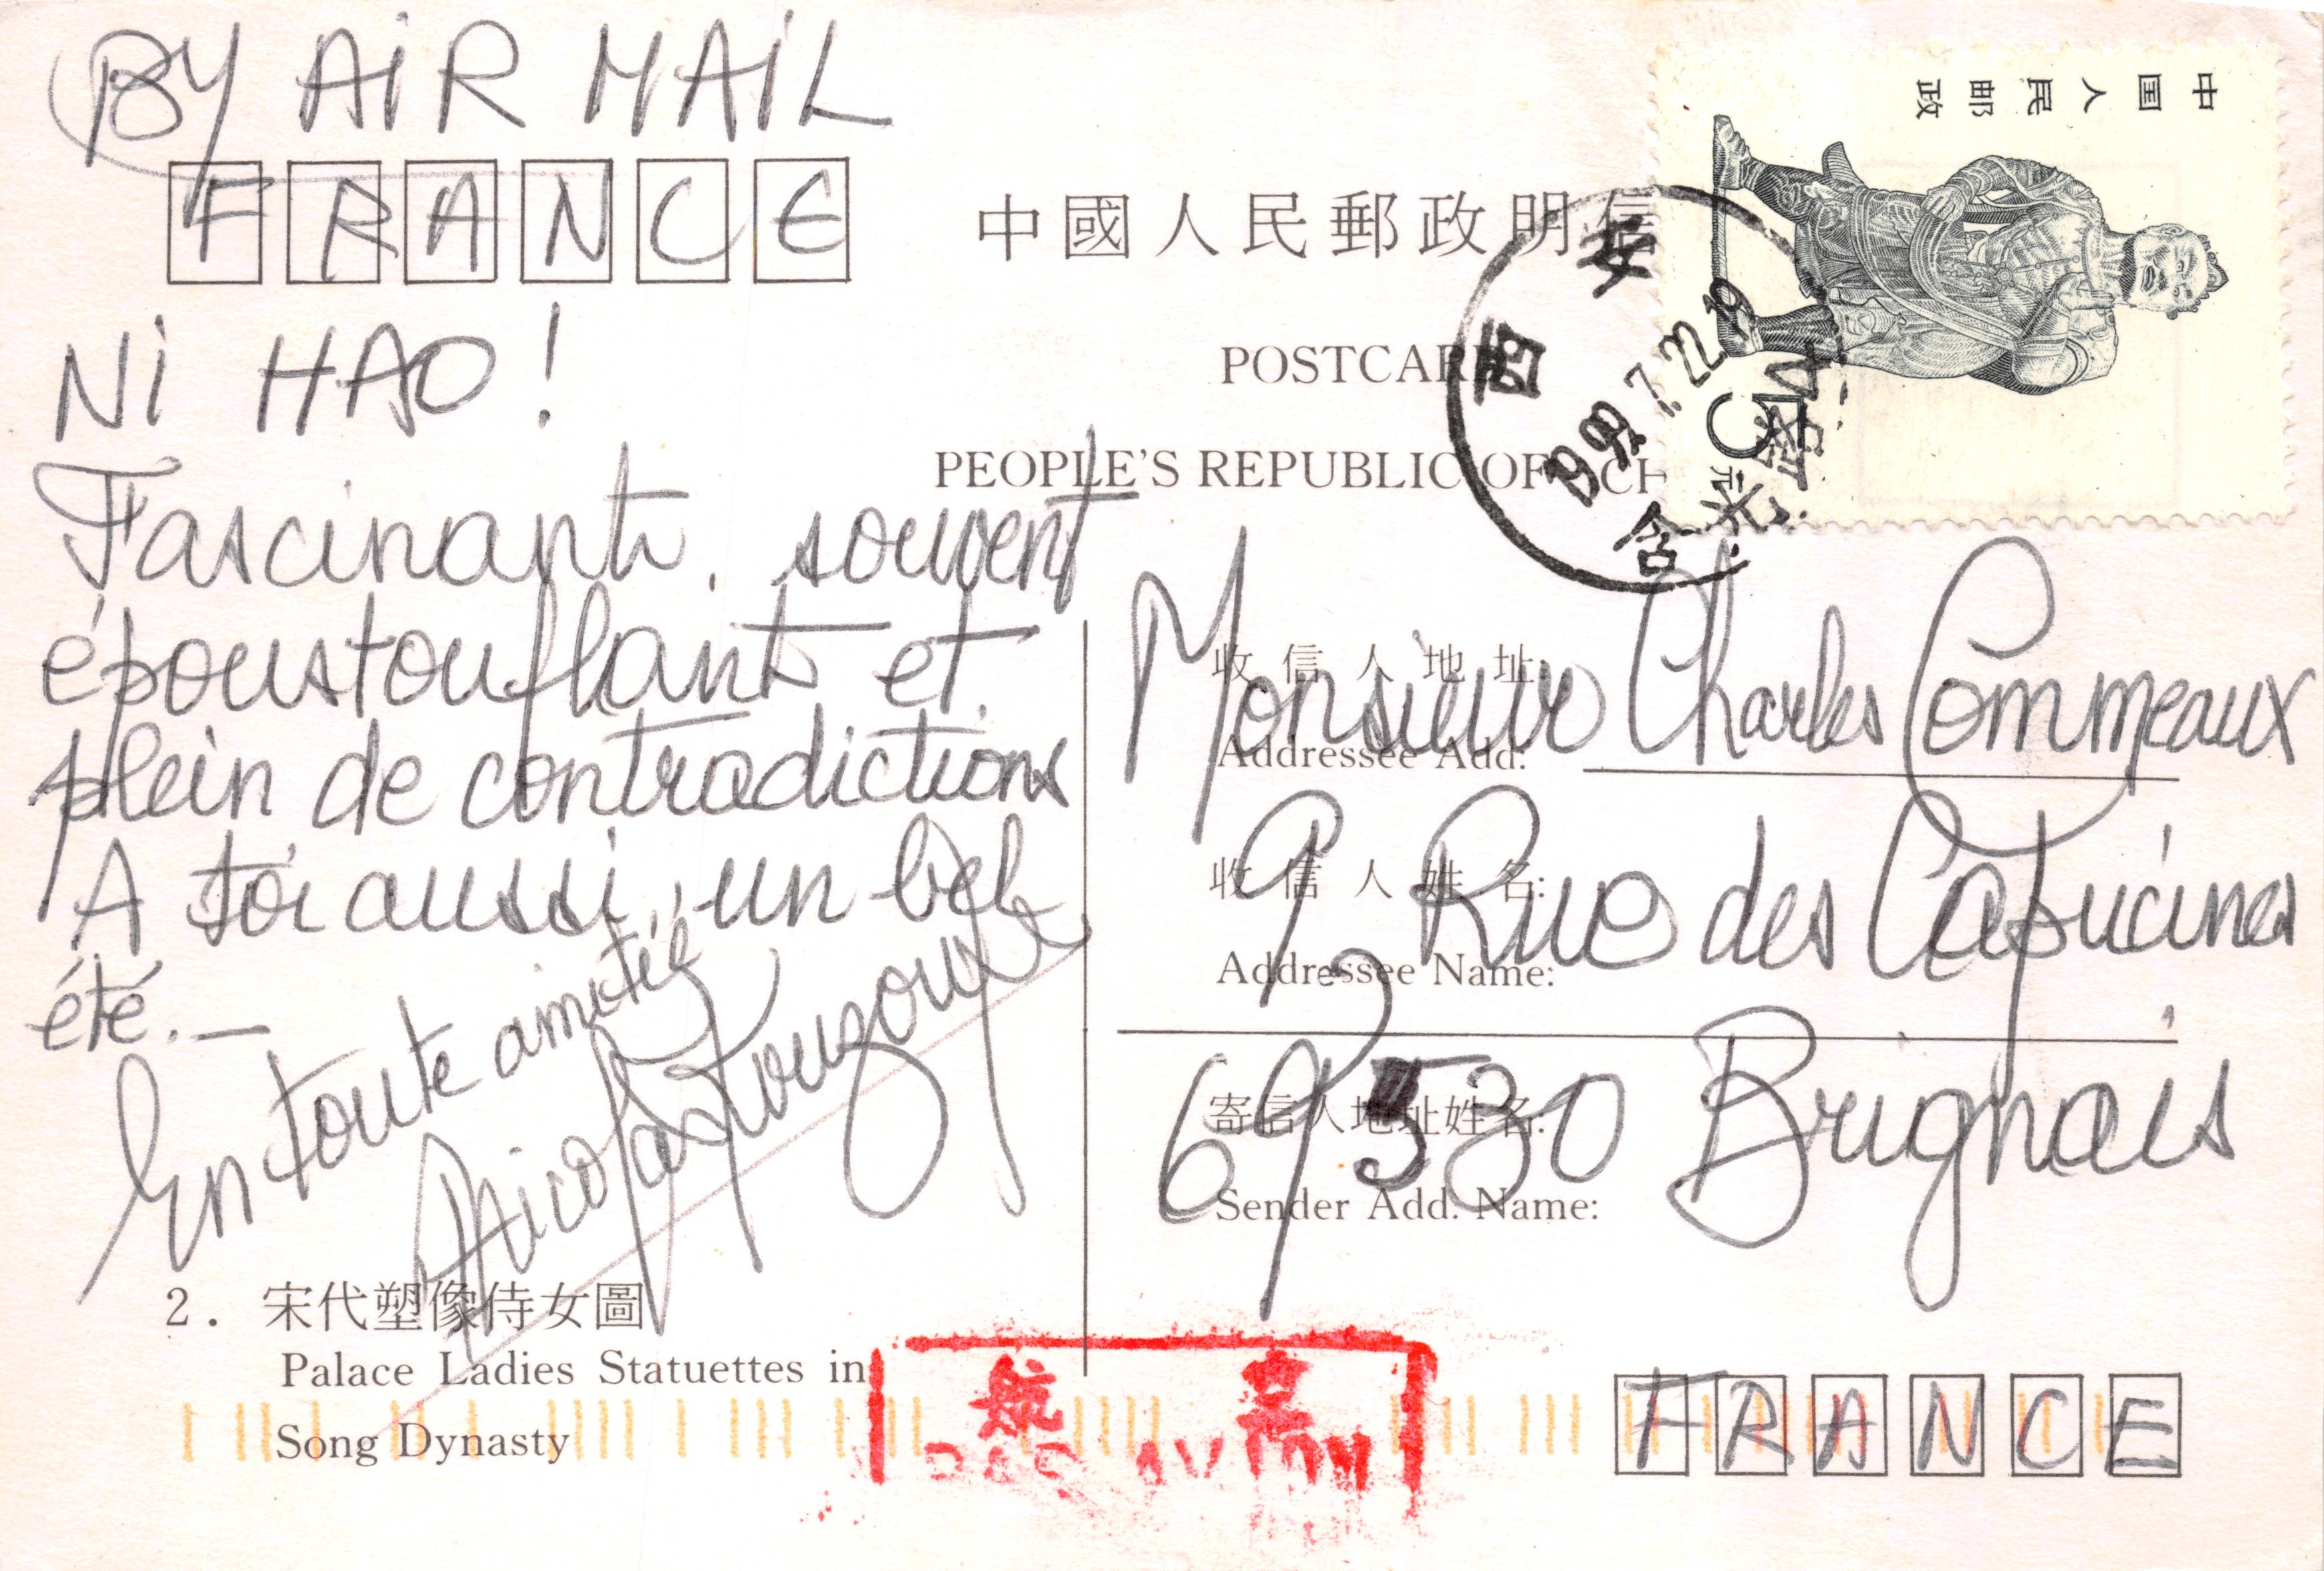 BY AIR MAIL
FRANCE
中國人民郵政明信
POSTCARD
PEOPLE'S REPUBLIC OF CH
中国人民邮政
5元
西安
1992.7.22.19
NI HAO !
Fascinant, souvent
époustouflant et
plein de contradictions
A toi aussi, un bel
été. _
En toute amitié
Nicolas
收信人地址:
Addressee Add:
Monsieur Charles Commeaux
收信人姓名:
Addressee Name:
9 Rue des Capucines
寄信人地址姓名:
Sender Add. Name:
69530 Brignais
2. 宋代塑像侍女圖
Palace Ladies Statuettes in
Song Dynasty
航空
PAR AVION
FRANCE